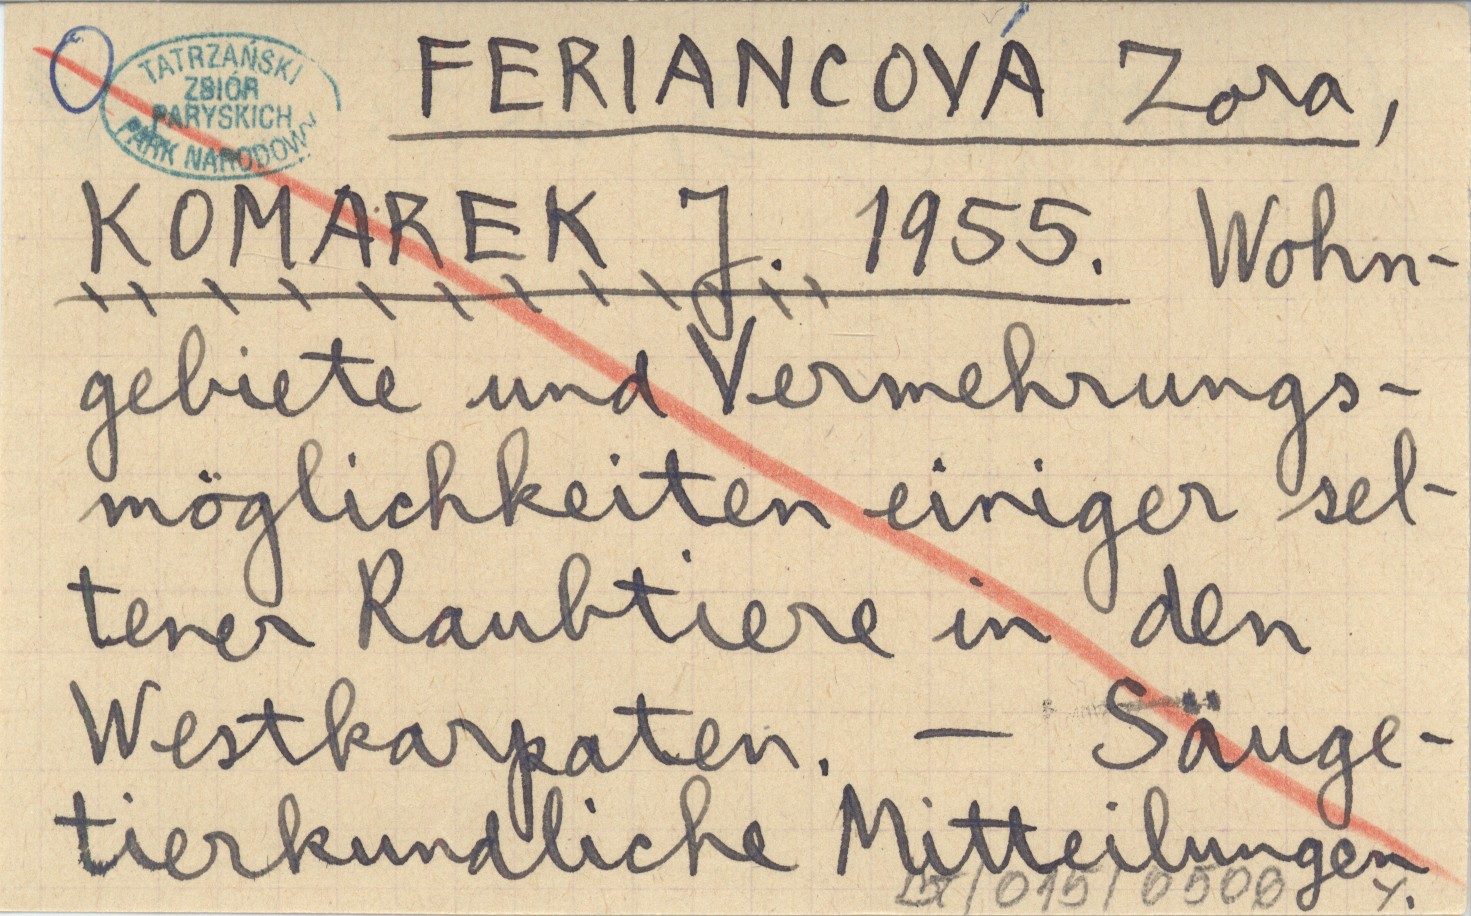 TATRZAŃSKI
ZBIÓR
PARYSKICH
PARK NARODOWY
FERIANCOVÁ Zora,
KOMAREK J. 1955. Wohn-
gebiete und Vermehrungs-
möglichkeiten einiger sel-
tener Raubtiere in den
Westkarpaten. — Säuge-
tierkundliche Mitteilungen
/015/0500